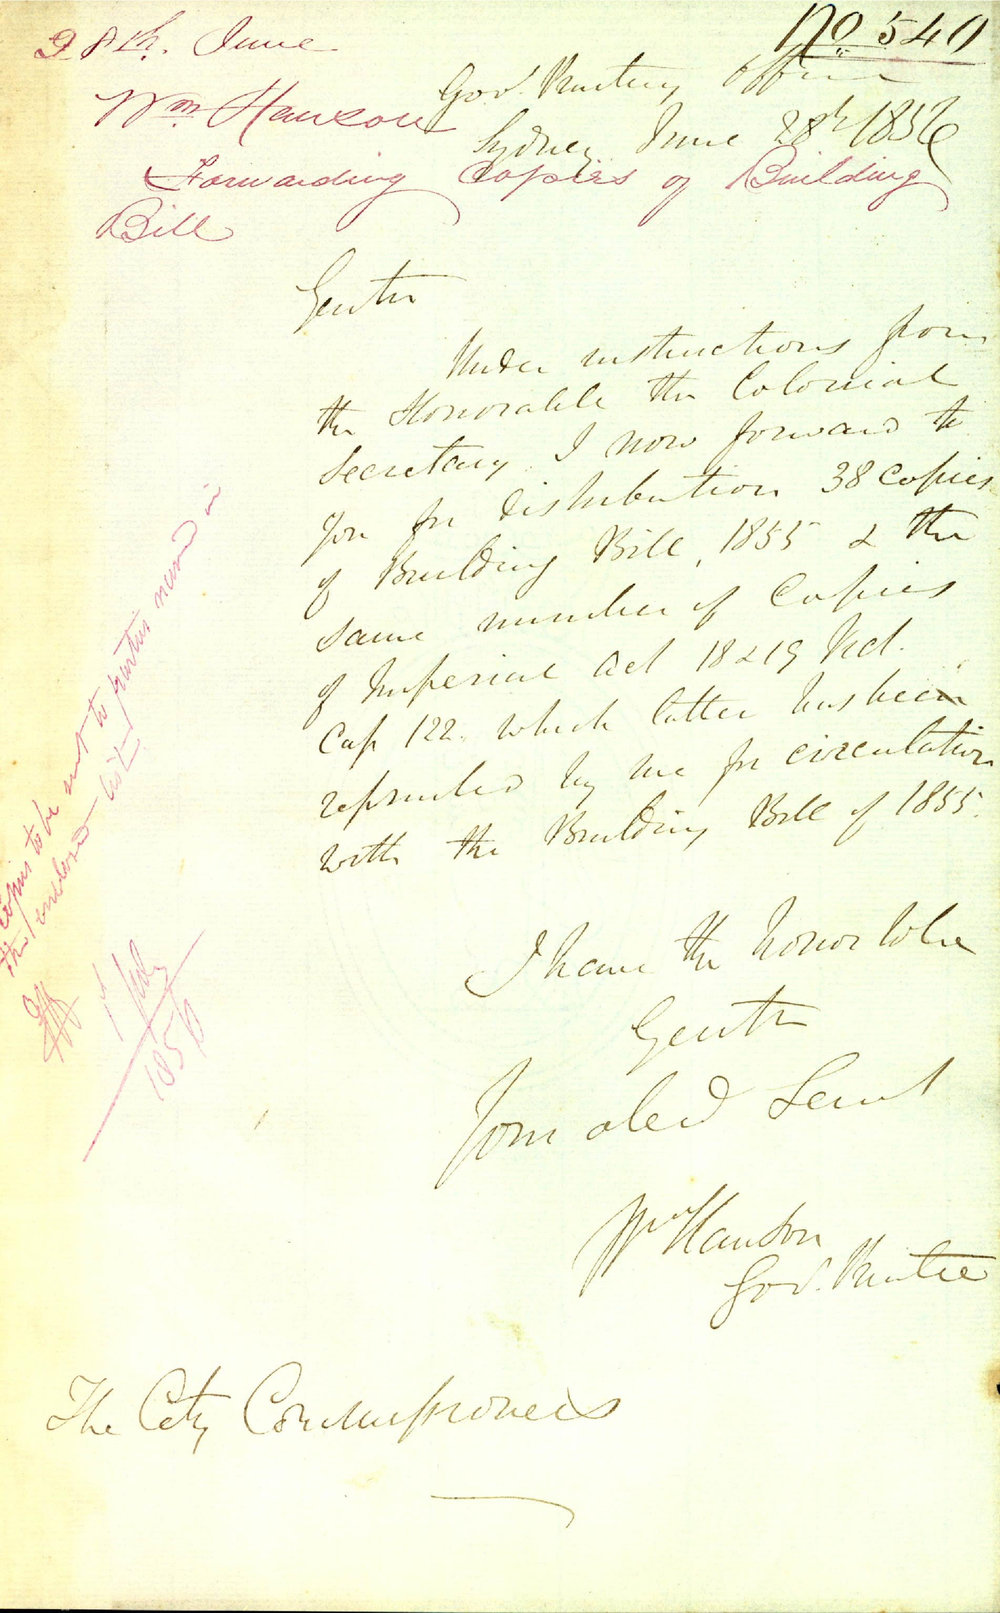 No 540
28th. June
Wm Hanson
Forwarding Copies of Building
Bill
Govt. Printing Office
Sydney June 28th 1856
Gentn
Under instructions from
the Honorable the Colonial
Secretary I now forward to
you for distribution 38 copies
of Building Bill, 1855 & the
same number of Copies
of Imperial Act 18 & 19 Vict.
Cap 122. which latter has been
reprinted by me for circulation
with the Building Bill of 1855.
I have the honor to be
Gentn
Your obed Servt
Wm Hanson
Govt. Printer
The City Commissioners
Copies to be sent to parties named in
the enclosed list
1st July
1856